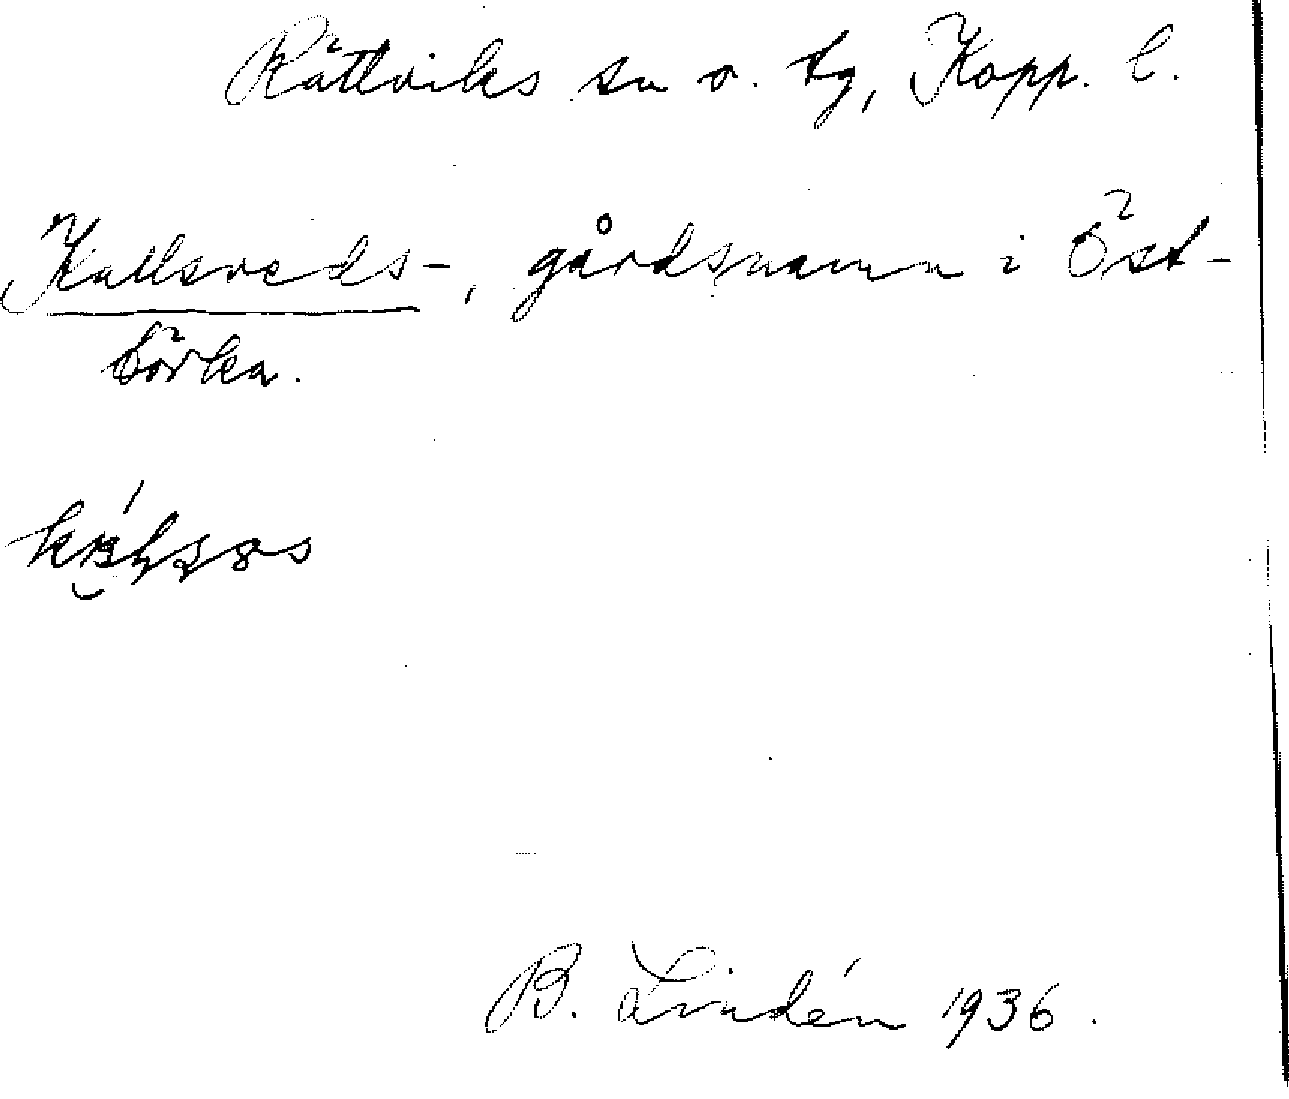 Rättviks sn o. tg, Kopp. l.
Kullsveds-, gårdsnamn i Öst-
börka.
B. Lindén 1936.